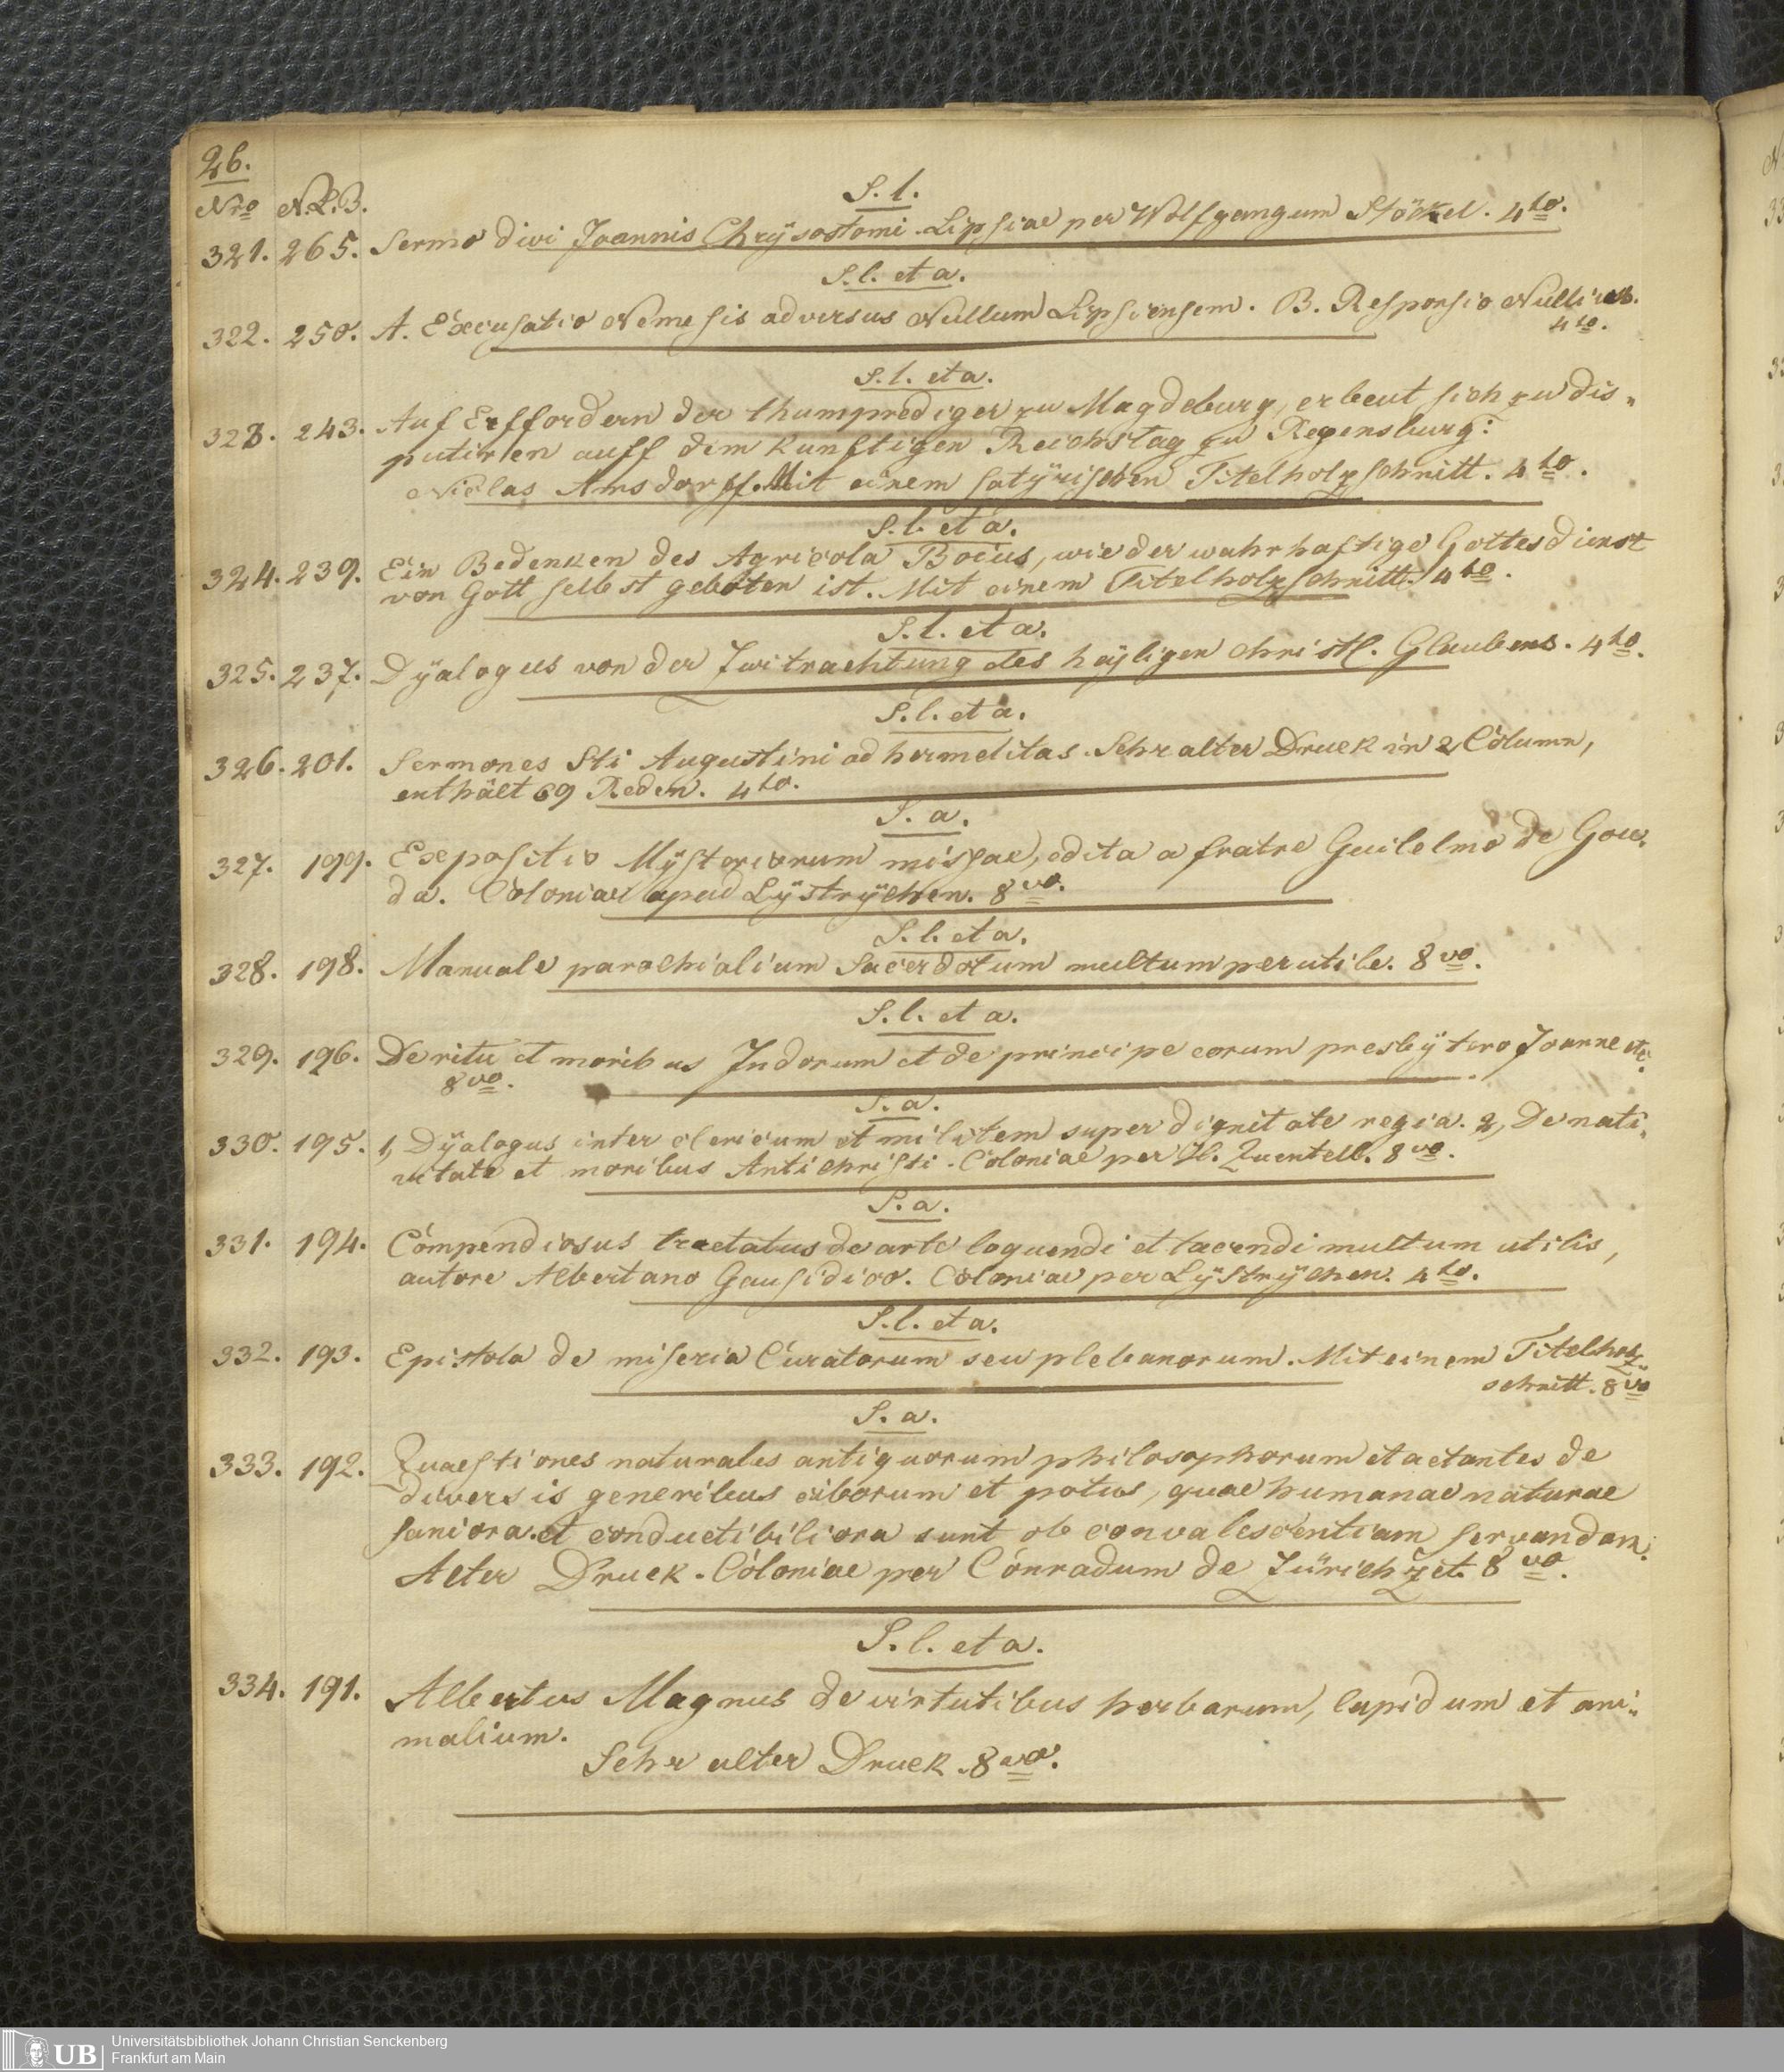 26.
Nro N.L.B.
S. l.
321. 265. Sermo divi Joannis Chrÿsostomi. Lipsiae per Wolfgangum Stöckel. 4to.
S. l. et a.
322. 250. A. Excusatio Nemesis adversus Nullum Lipsiensem. B. Responsio Nullius.
4to.
S. l. et a.
323. 243. Auf Erffordern der thumprediger zu Magdeburg, erbeut sich zu dis-
putirlen auff dem kunftigen Reichstag zu Regensburg:
Niclas Amsdorff. Mit einem satÿrischen Titelholzschnitt. 4to.
S. l. et a.
324. 239. Ein Bedenken des Agricola Bocius, wie der wahrhaftige Gottesdienst
von Gott selbst geboten ist. Mit einem Titelholzschnitt. 4to.
S. l. et a.
325. 237. Dÿalogus von der Zwitrachtung des heÿligen christl. Glaubens. 4to.
S. l. et a.
326. 201. Sermones Sti Augustini ad hermeditas. Sehr alter Druck in 2 Column,
enthält 69 Reden. 4to.
S. a.
327. 199. Expositio Mÿsteriorum missae, edita a fratre Guilelmo de Gou-
da. Coloniae apud Lÿstrÿchen. 8vo.
S. l. et a.
328. 198. Manuale parochialium Sacerdotum multum perutile. 8vo.
S. l. et a.
329. 196. De ritu et moribus Indorum et de principe eorum presbÿtero Joanne etc.
8vo.
S. a.
330. 195. 1, Dÿalogus inter clericum et militem super dignitate regia. 2, De nati-
vitate et moribus Antichristi. Coloniae per H. Quentell. 8vo.
S. a.
331. 194. Compendiosus tractatus de arte loquendi et tacendi multum utilis,
autore Albertano Gausidico. Coloniae per Lÿstrÿchen. 4to.
S. l. et a.
332. 193. Epistola de miseria Curatorum seu plebanorum. Mit einem Titelholz-
schnitt. 8vo
S. a.
333. 192. Quaestiones naturales antiquorum philosophorum etactantes de
diversis generibus ciborum et potus, quae humanae naturae
saniora et conductibiliora sunt ob convalescentiam servandam.
Alter Druck. Coloniae per Conradum de Zürichzet. 8vo.
S. l. et a.
334. 191. Albertus Magnus de virtutibus herbarum, lapidum et ani-
malium.
Sehr alter Druck. 8vo.
UB
Universitätsbibliothek Johann Christian Senckenberg
Frankfurt am Main